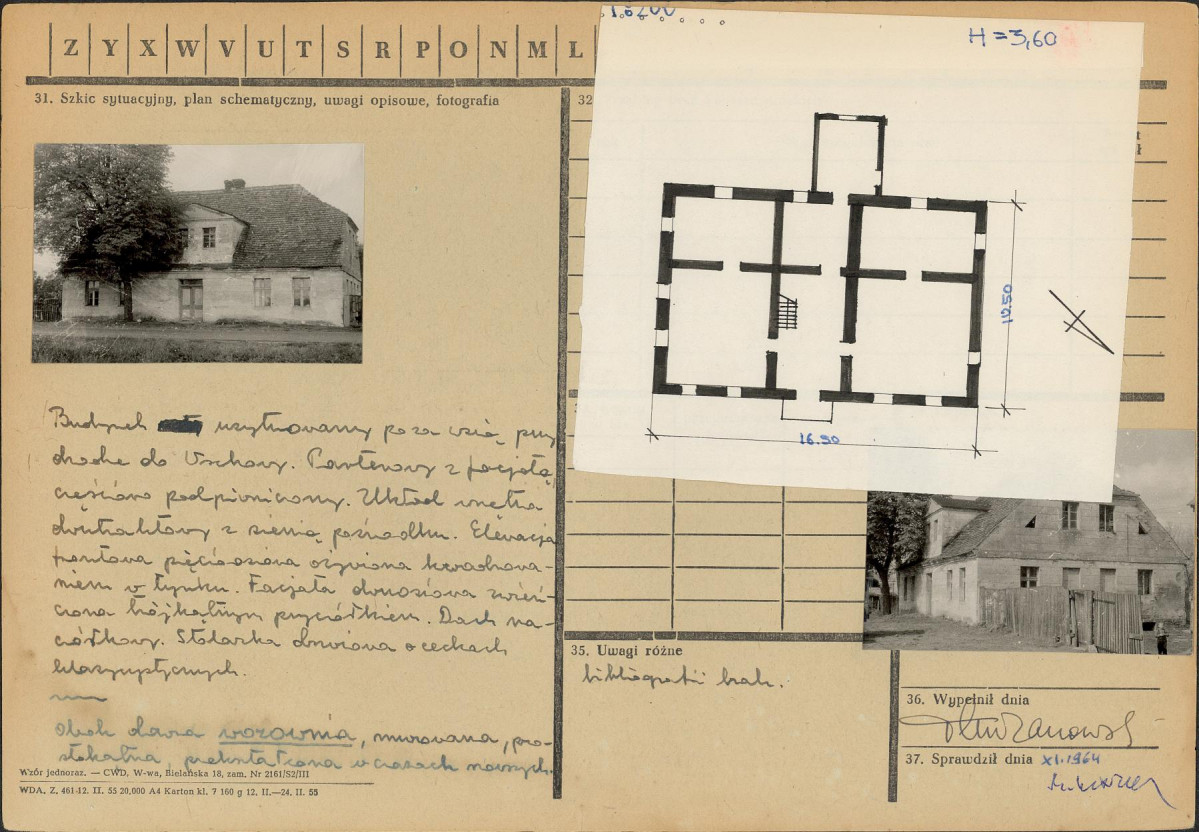 Z Y X W V U T S R P O N M L
31. Szkic sytuacyjny, plan schematyczny, uwagi opisowe, fotografia
32
H = 3,60
12.50
16.90
Budynek usytuowany poza wsią przy
drodze do Wschowy. Parterowy z facjatą,
częściowo podpiwniczony. Układ wnętrz
dwutraktowy z sienią pośrodku. Elewacja
frontowa pięcioosiowa ożywiona kwadrowa-
niem w tynku. Facjata dwuosiowa zwień-
czona trójkątnym przyczółkiem. Dach na-
czółkowy. Stolarka drzwiowa o cechach
klasycystycznych.
Obok dawna wozownia, murowana, pro-
stokątna, przekształcona w czasach nowszych.
Wzór jednoraz. — CWD, W-wa, Bielańska 18, zam. Nr 2161/S2/III
WDA. Z. 461-12. II. 55 20.000 A4 Karton kl. 7 160 g 12. II.—24. II. 55
35. Uwagi różne
bibliografii brak.
36. Wypełnił dnia
37. Sprawdził dnia XI.1964